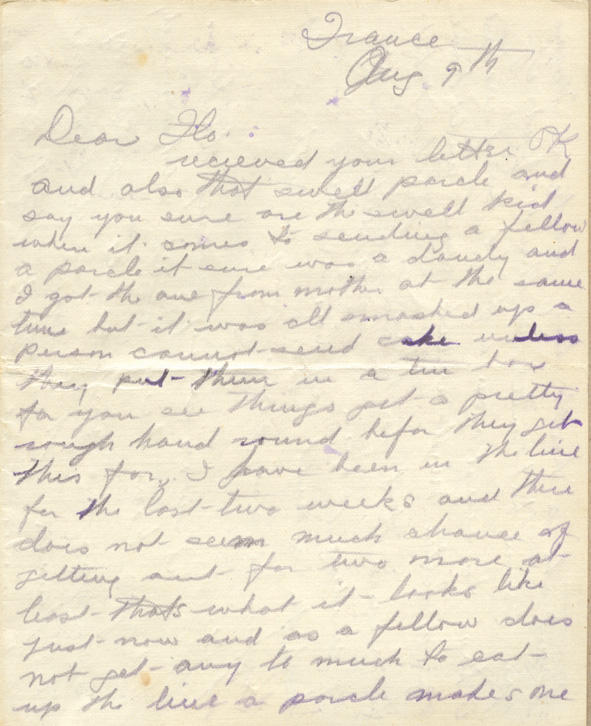 France
Aug 9th
Dear Flo.
recieved your letter OK
and also that swell parcle and
say you sure are the swell kid
when it comes to sending a fellow
a parcle it sure was a dandy and
I got the one from mother at the same
time but it was all smashed up a
person cannot send cake unless
they put them in a tin box
for you see things get a pretty
rough hand round befor they get
this far. I have been in the line
for the last two weeks and there
does not seem much chance of
getting out for two more at
least thats what it looks like
just now and as a fellow does
not get any to much to eat
up the line a parcle makes one